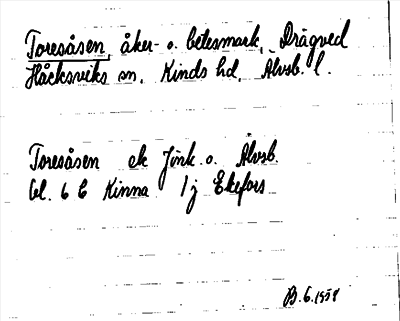 Toresåsen, åker- o. betesmark, Drägved
Håcksviks sn, Kinds hd, Älvsb. l.
Toresåsen ek Jönk. o. Älvsb.
bl. 6 C Kinna 1 j Ekefors
B. 6. 1958